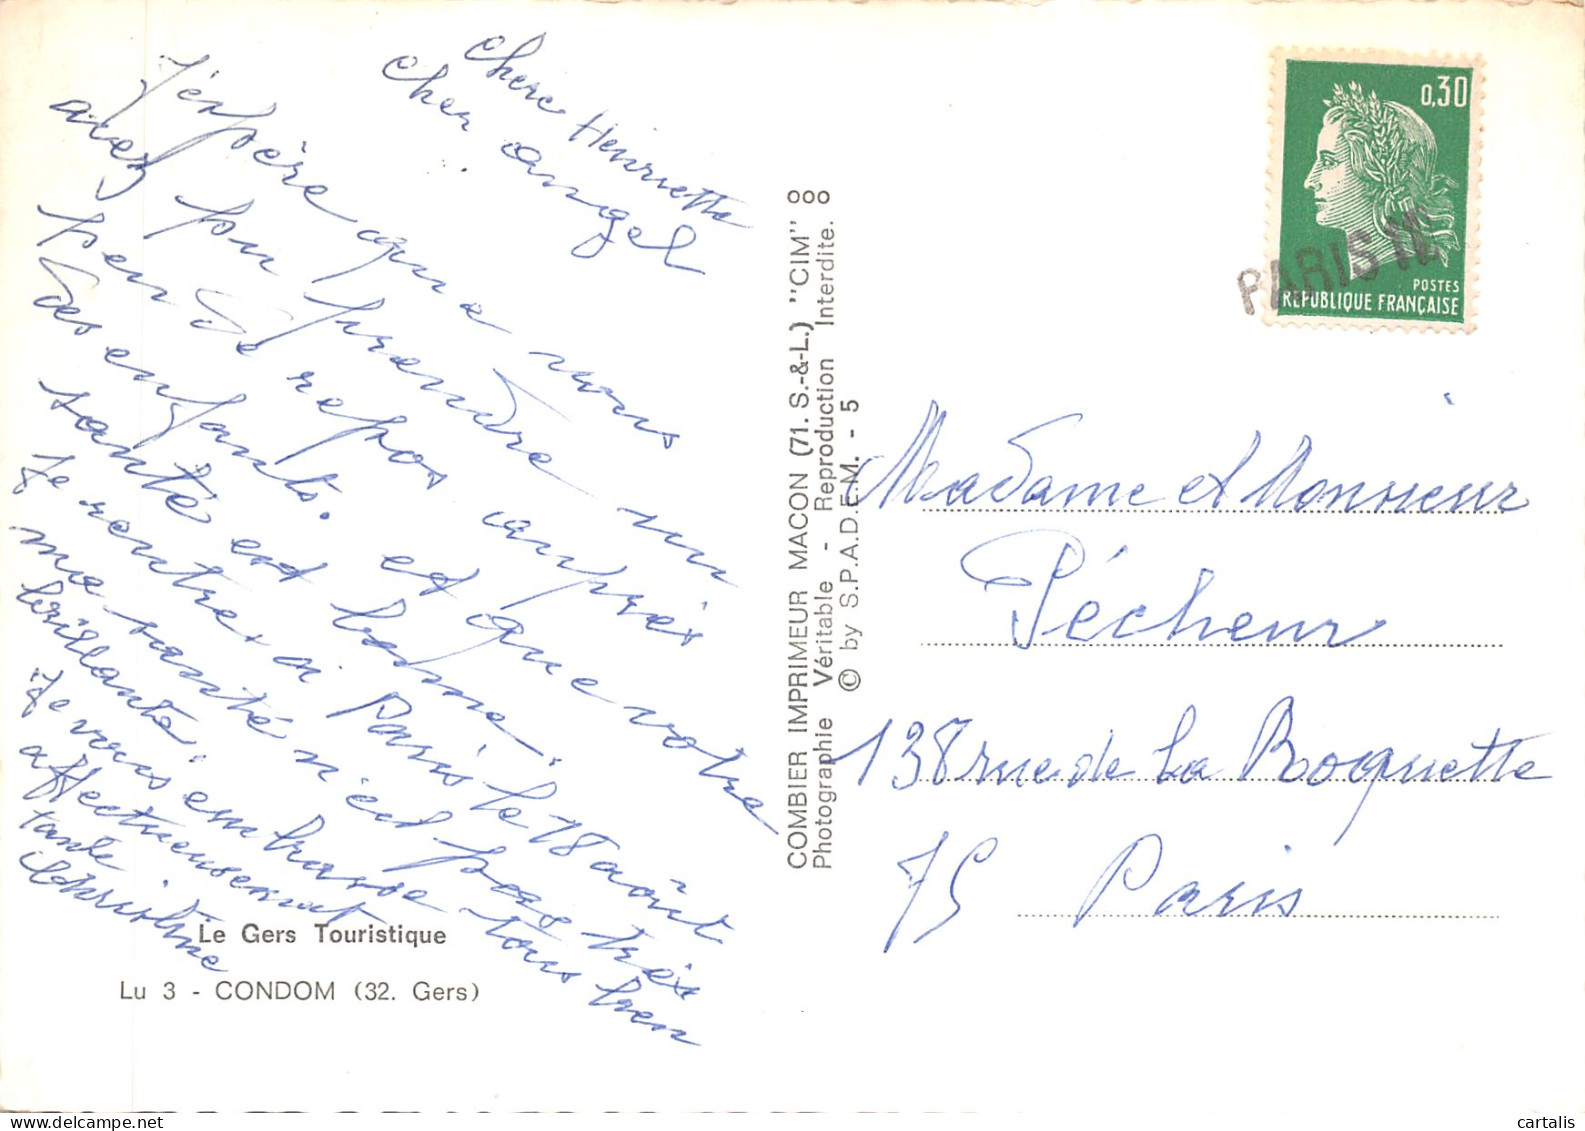 Chere Henriette
cher Angel
J'espère que vous
avez pu prendre un
peu de repos auprès
des enfants. et que votre
santé est bonne.
Je rentrer a Paris le 18 août
ma santé n'est pas très
brillante.
Je vous embrasse tous bien
affectueusement
tante
Christine
Le Gers Touristique
Lu 3 - CONDOM (32. Gers)
COMBIER IMPRIMEUR MACON (71. S.-&-L.) "CIM"
Photographie Véritable - Reproduction Interdite.
© by S.P.A.D.E.M. - 5
0,30
POSTES
REPUBLIQUE FRANÇAISE
PARIS
Madame et Monsieur
Pécheur
138 rue de la Roquette
75 Paris
cartalis
www.delcampe.net